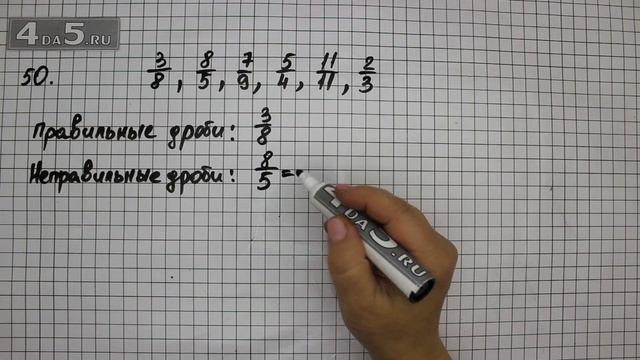 4DA5.RU
50. 3/8, 8/5, 7/9, 5/4, 11/11, 2/3
Правильные дроби: 3/8
Неправильные дроби: 8/5 =
4DA5.RU